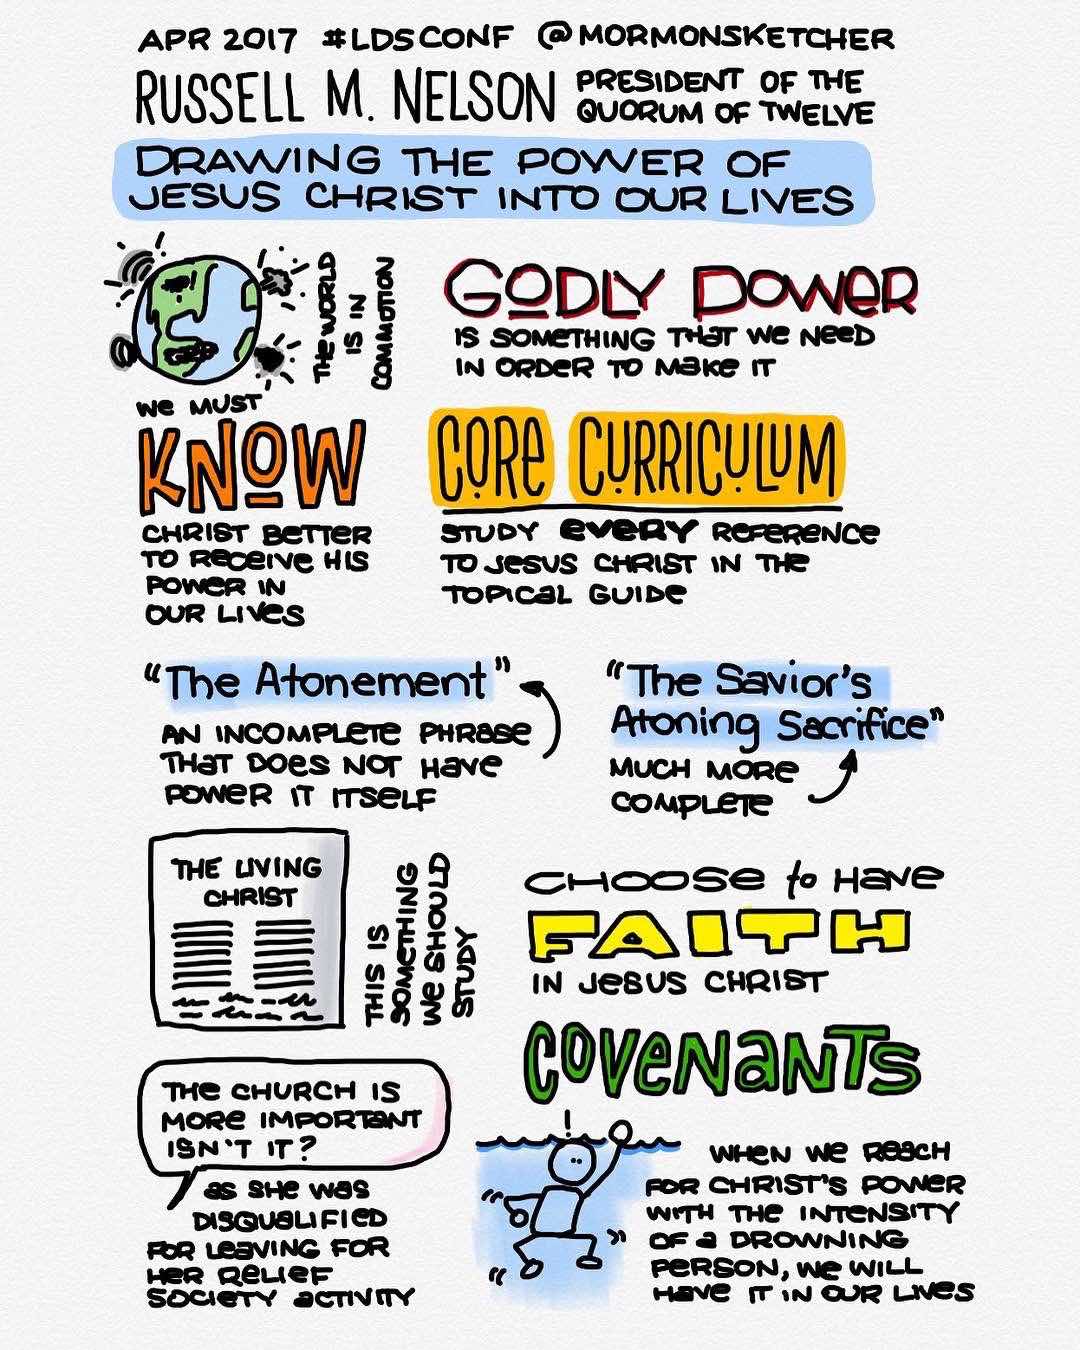 APR 2017 #LDSCONF @MORMONSKETCHER
RUSSELL M. NELSON
PRESIDENT OF THE
QUORUM OF TWELVE
DRAWING THE POWER OF
JESUS CHRIST INTO OUR LIVES
THE WORLD
IS IN
COMMOTION
GODLY POWER
IS SOMETHING THAT WE NEED
IN ORDER TO MAKE IT
WE MUST
KNOW
CHRIST BETTER
TO RECEIVE HIS
POWER IN
OUR LIVES
CORE CURRICULUM
STUDY EVERY REFERENCE
TO JESUS CHRIST IN THE
TOPICAL GUIDE
"The Atonement"
AN INCOMPLETE PHRASE
THAT DOES NOT HAVE
POWER IT ITSELF
"The Savior's
Atoning Sacrifice"
MUCH MORE
COMPLETE
THE LIVING
CHRIST
THIS IS
SOMETHING
WE SHOULD
STUDY
CHOOSE to HAVE
FAITH
IN JESUS CHRIST
COVENANTS
THE CHURCH IS
MORE IMPORTANT
ISN'T IT?
AS SHE WAS
DISQUALIFIED
FOR LEAVING FOR
HER RELIEF
SOCIETY ACTIVITY
!
WHEN WE REACH
FOR CHRIST'S POWER
WITH THE INTENSITY
OF A DROWNING
PERSON, WE WILL
HAVE IT IN OUR LIVES